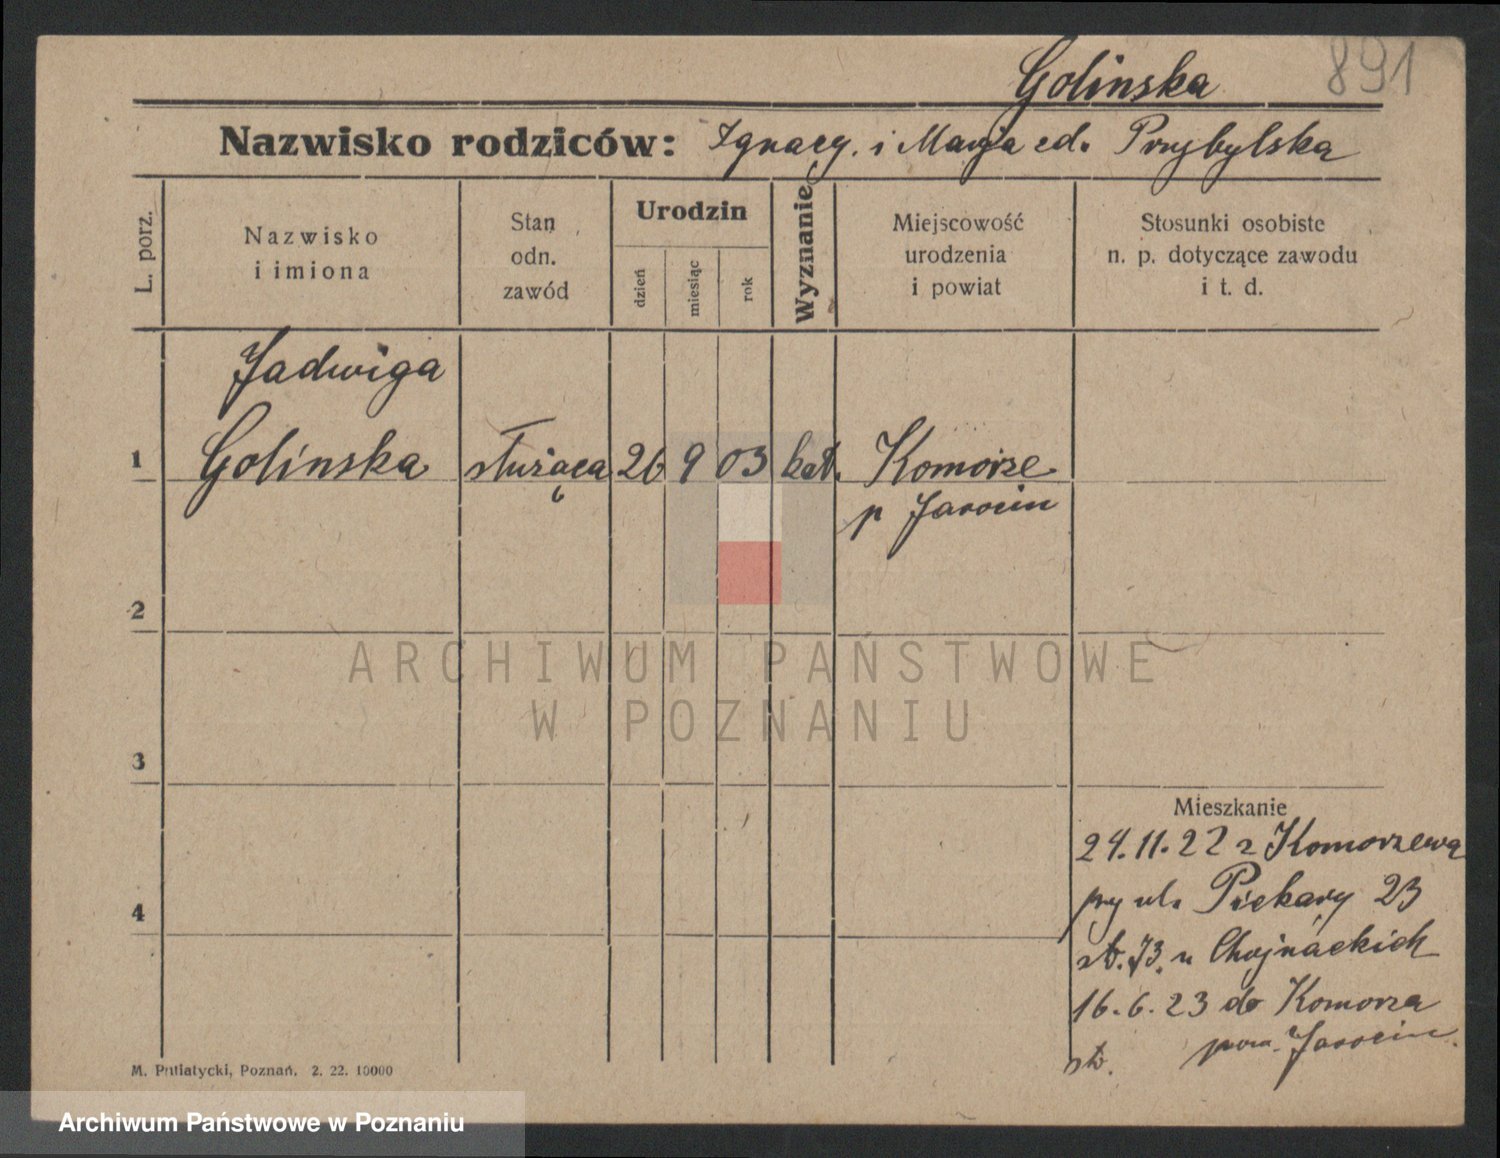 Golinska 891
Nazwisko rodziców: Ignacy. i Marja cd. Przybylska
L. porz.
Nazwisko
i imiona
Stan
odn.
zawód
Urodzin
dzień
miesiąc
rok
Wyznanie
Miejscowość
urodzenia
i powiat
Stosunki osobiste
n. p. dotyczące zawodu
i t. d.
Jadwiga
1 Golinska służąca 26 9 03 kat. Komorze
p Jarocin
2
ARCHIWUM PAŃSTWOWE
W POZNANIU
3
Mieszkanie
24.11.22 z Komorzewa
przy ul. Piekary 23
st. 73. u Chojnackich
4
16.6.23 do Komorza
pow. Jarocin.
M. Putiatycki, Poznań. 2. 22. 10000
Archiwum Państwowe w Poznaniu